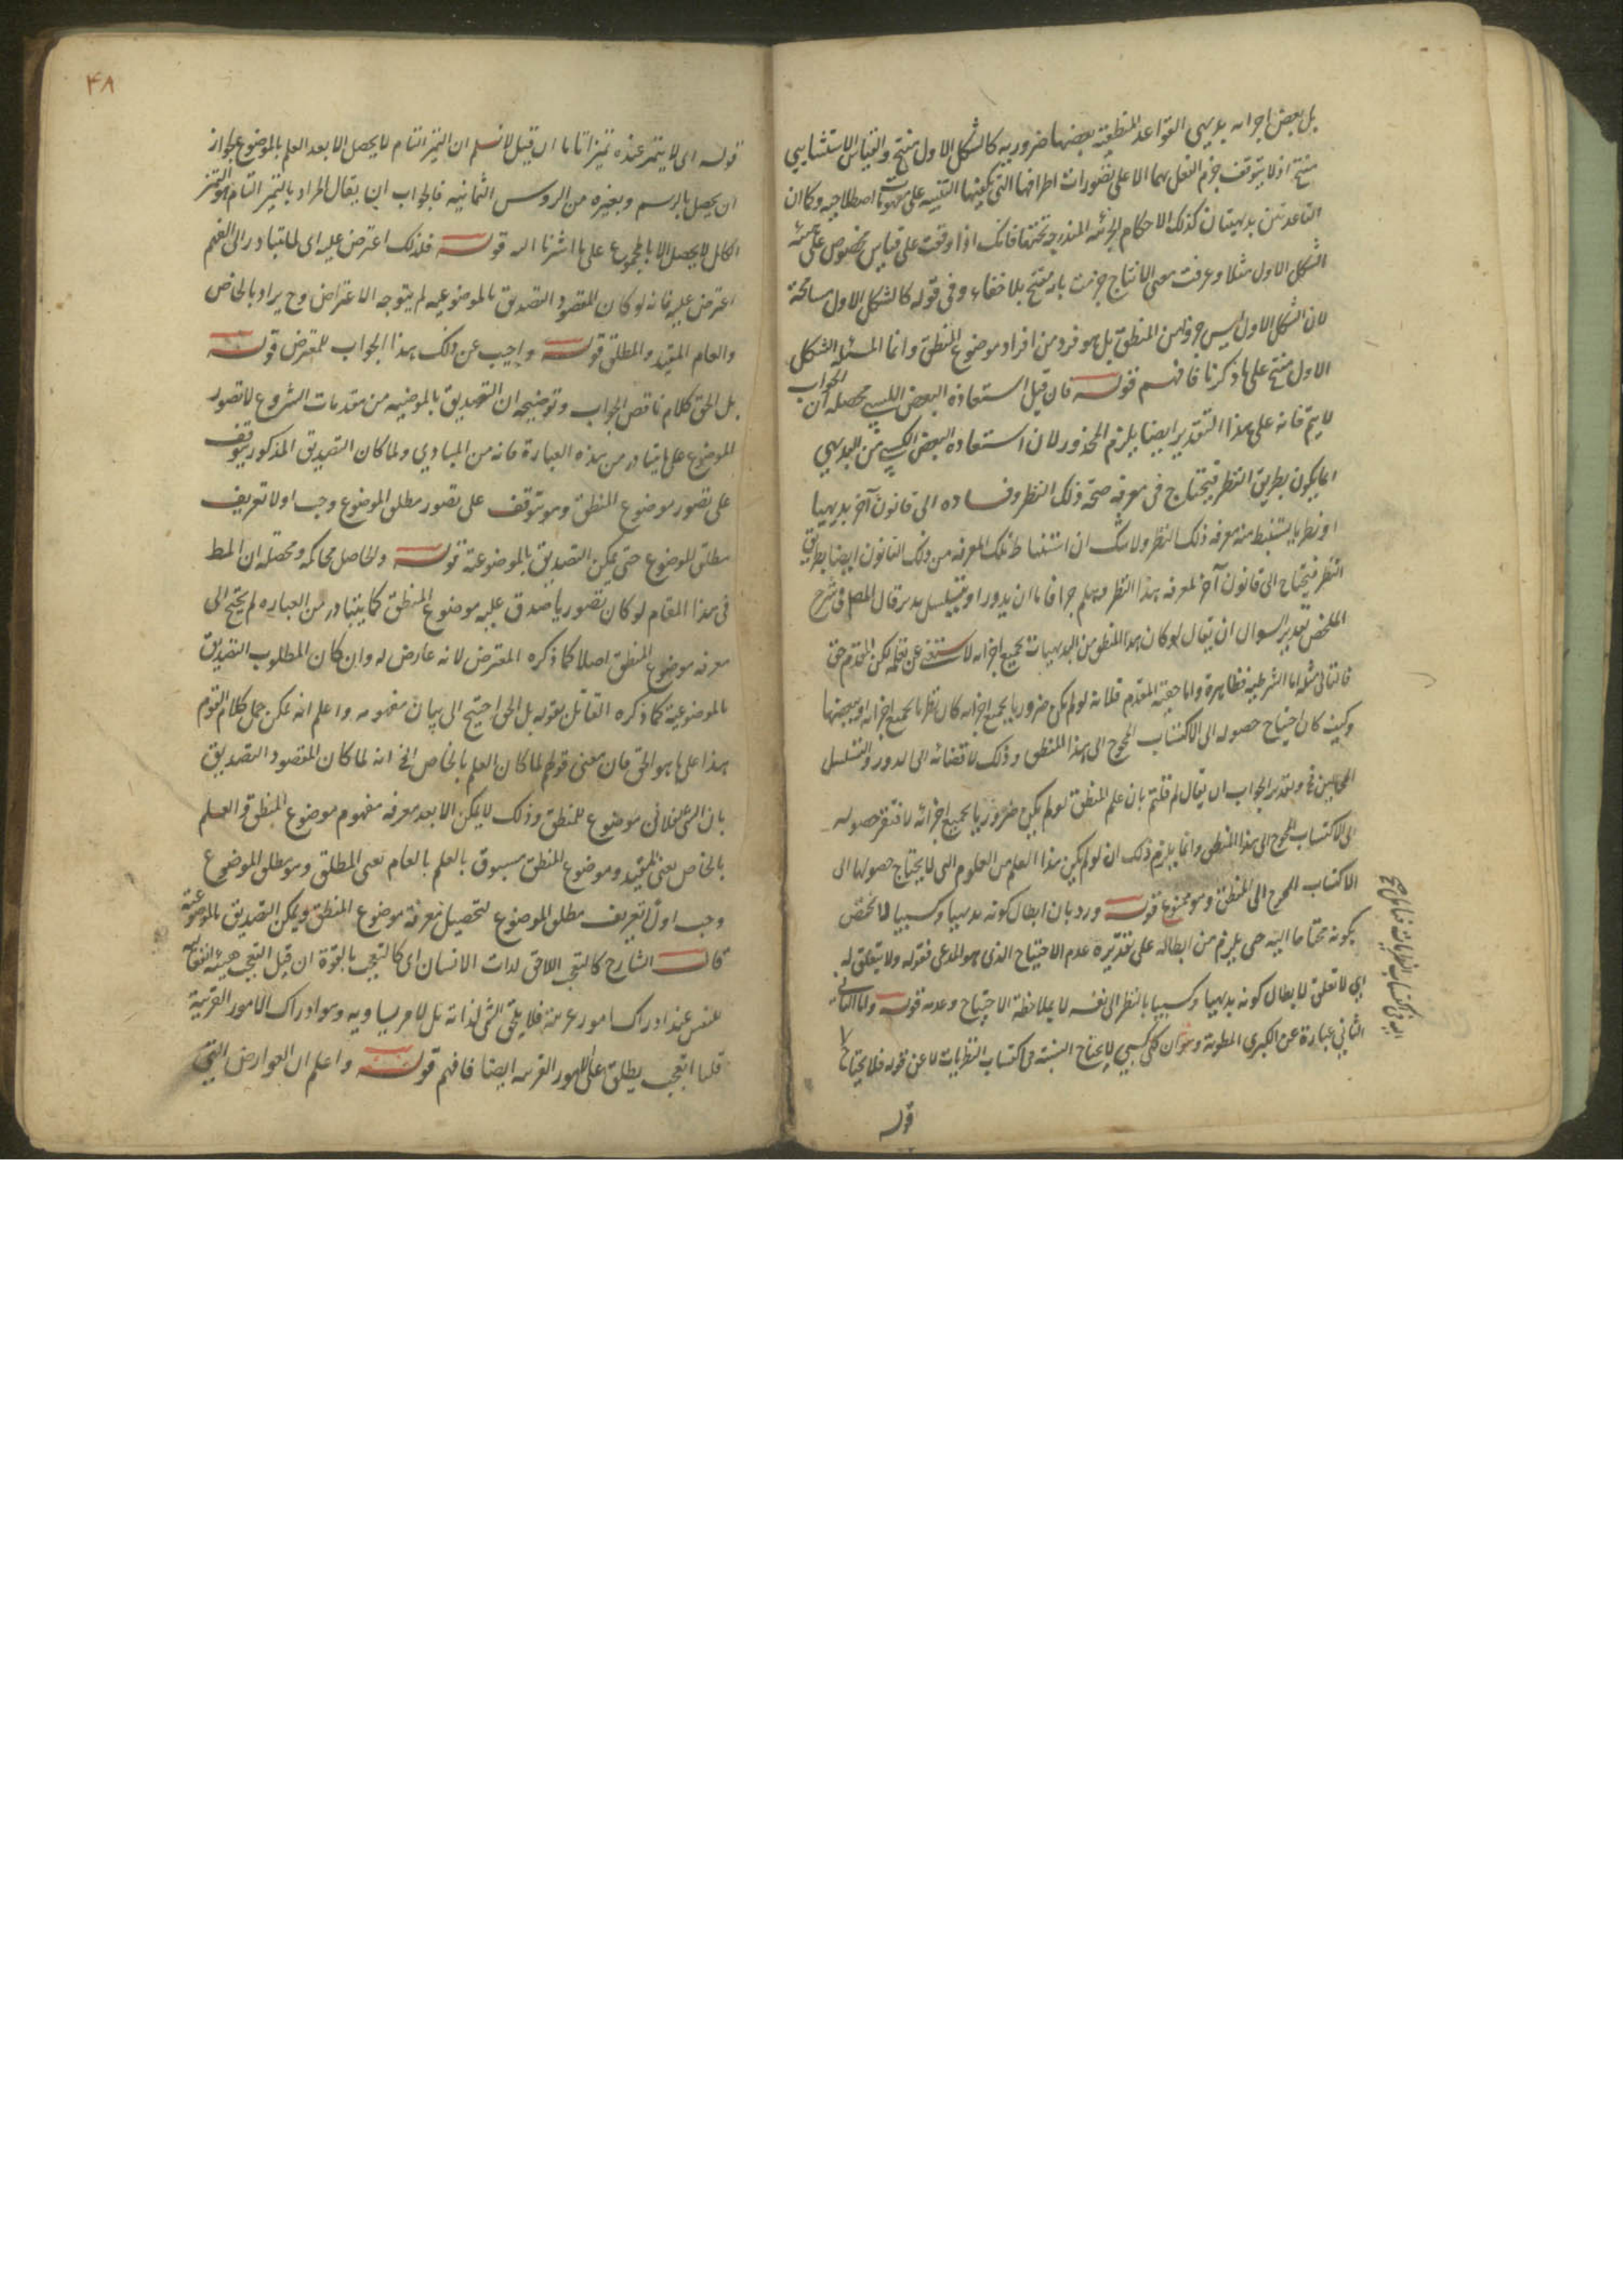 بل بعض اجزائه بديهي القواعد المنطقية بعضها ضرورية كالشكل الاول منتج والقياس الاستثنايي
منتج اذ لا يتوقف جزم العقل بهما الا على تصورات اطرافها التي يكفيها التنبيه على مفهومات اصطلاحيه وكان
القاعدتين بديهيتان كذلك الاحكام الجزئيه المندرجة تحتها فانك اذا وقفت على قياس مخصوص على هيئة
الشكل الاول مثلا وعرفت معنى الانتاج جزمت بانه منتج بلا خفاء وفي قوله كالشكل الاول مسامحة
لان الشكل الاول ليس جزءا من المنطق بل هو فرد من افراد موضوع المنطق وانما المسئلة الشكل
الاول منتج على ما ذكرنا فافهم قوله فان قيل استعادة البعض الكسبي محصله ان الجواب
لا يتم فانه على هذا التقدير ايضا يلزم المحذور لان استعاده البعض الكسبي من البديهي
انما يكون بطريق النظر فيحتاج في معرفة صحة ذلك النظر وفساده الى قانون آخر بديهيا
او نظريا يستنبط منه معرفه ذلك النظر ولا شك ان استنباط تلك المعرفه من ذلك القانون ايضا بطريق
النظر فيحتاج الى قانون آخر لمعرفه هذا النظر وهلم جرا فاما ان يدور او يتسلسل قال المص في شرح
الملخص تقدير السوال ان يقال لو كان هذا المنطق من البديهيات بجميع اجزائه لاستغنى عن تعلمه لكن المقدم حق
فالتالي مثله اما الشرطيه فظاهرة واما حقية المقدم فلانه لو لم يكن ضروريا بجميع اجزائه كان نظريا بجميع اجزائه او ببعضها
وكيف كان احتياج حصوله الى الاكتساب المحوج الى هذا المنطق وذلك لاقتضائه الى الدور والتسلسل
المحالين وتقدير الجواب ان يقال لم قلتم بان علم المنطق لو لم يكن ضروريا بجميع اجزائه لافتقر حصوله
الى الاكتساب المحوج الى هذا المنطق وانما يلزم ذلك ان لو لم يكن هذا العلم من العلوم التي لا يحتاج حصولها الى
الاكتساب المحوج الى المنطق وهو ممنوع قوله ورد بان ابطال كونه بديهيا وكسبيا لا يختص
بكونه محتاجا اليه حتى يلزم من ابطاله على تقديره عدم الاحتياج الذى هو المدعى فقوله ولا يتعلق له
اي لا تعلق لابطال كونه بديهيا وكسبيا بالنظر الى نفسه لا بملاحظة الاحتياج وعدمه قوله واما الثاني
الثاني عبارة عن الكبرى المطوية وهو ان كل كسبي لا يحتاج اليه في اكتساب النظريات لا عن قوله فلا يحتاج
اليه في اكتساب النظريات
قوله
۴۸
قوله اى لا يتميز عنده تميزا تاما ان قيل لا نسلم ان التميز التام لا يحصل الا بعد العلم بالموضوع لجواز
ان يحصل بالرسم وبغيره من الروس الثمانيه فالجواب ان يقال المراد بالتميز التام هو التميز
الكامل لا يحصل الا بالمجموع على ما اشرنا اليه قوله فلذلك اعترض عليه اى لما يتبادر الى الفهم
اعترض عليه فانه لو كان المقصود التصديق بالموضوعيه لم يتوجه الاعتراض وح يراد بالخاص
والعام المقيد والمطلق قوله واجيب عن ذلك بهذا الجواب للمعترض قوله
بل الحق كلام ناقص الجواب وتوضيحه ان التصديق بالموضعيه من مقدمات الشروع لا تصور
الموضوع على ما يتبادر من هذه العبارة فانه من المبادي ولما كان التصديق المذكور يتوقف
على تصور موضوع المنطق وهو يتوقف على تصور مطلق الموضوع وجب اولا تعريف
مطلق الموضوع حتى يمكن التصديق بالموضوعية قوله والحاصل محاكمه ومحصله ان المط
في هذا المقام لو كان تصور ما صدق عليه موضوع المنطق كما يتبادر من العباره لم يحتج الى
معرفه موضوع المنطق اصلا كما ذكره المعترض لانه عارض له وان كان المطلوب التصديق
بالموضوعية كما ذكره القائل بقوله بل الحق احتيج الى بيان مفهومه واعلم انه يمكن حمل كلام القوم
هذا على ما هو الحق فان معنى قولهم لما كان العلم بالخاص الخ انه لما كان المقصود التصديق
بان الشئ الفلاني موضوع للمنطق وذلك لا يمكن الا بعد معرفه مفهوم موضوع المنطق والعلم
بالخاص يعنى المقيد وهو موضوع المنطق مسبوق بالعلم بالعام يعنى المطلق وهو مطلق الموضوع
وجب اولا تعريف مطلق الموضوع لتحصيل معرفة موضوع المنطق ويمكن التصديق بالموضوعية
قال الشارح كالتعجب اللاحق لذات الانسان اى كالتعجب بالقوة ان قيل التعجب هيئة انفعالية
للنفس عند ادراك امور غريبة فلا يلحق الشئ لذاته بل لامر يساويه وهو ادراك الامور الغريبة
قلنا التعجب يطلق على الامور الغريبه ايضا فافهم قوله واعلم ان العوارض التي